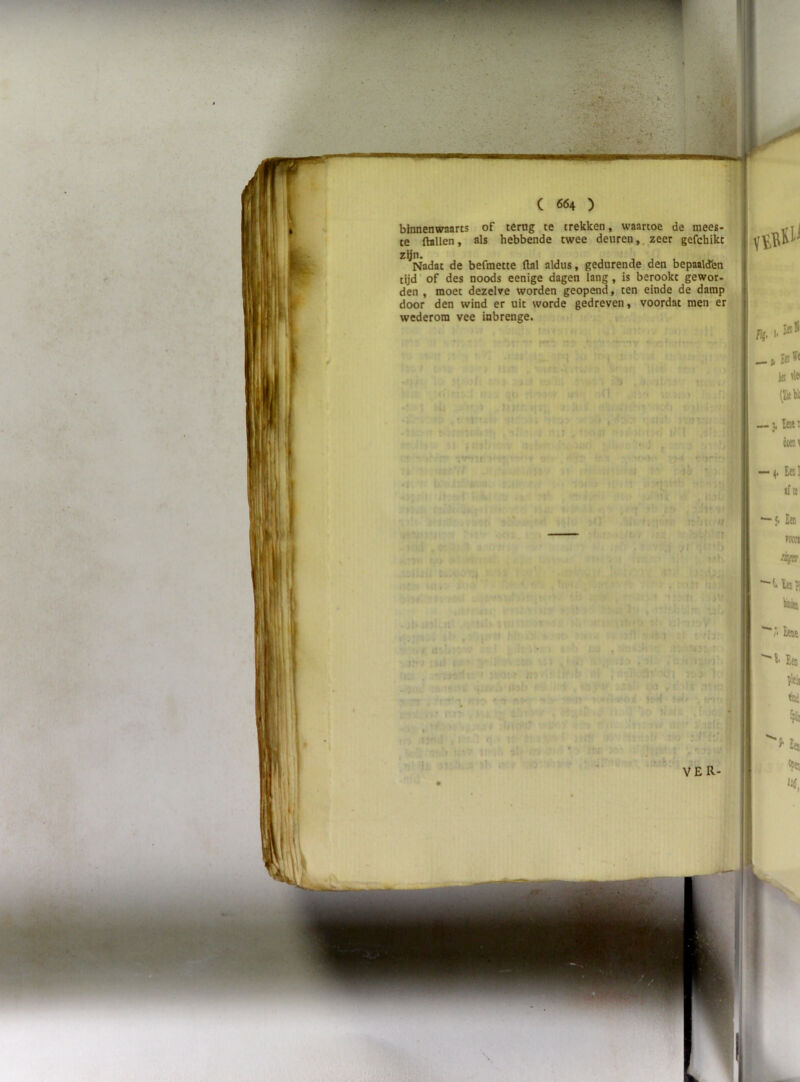 ( 664 )
binnenwaarts of terug te trekken, waartoe de mees-
te ſtallen, als hebbende twee deuren, zeer geſchikt
zijn.
Nadat de beſmette ſtal aldus, gedurende den bepaalden
tijd of des noods eenige dagen lang, is berookt gewor-
den, moet dezelve worden geopend, ten einde de damp
door den wind er uit worde gedreven, voordat men er
wederom vee inbrenge.
VER-
VERKL
Fig. 1.
— 3. Eene
— 4. Een
— 5. Een